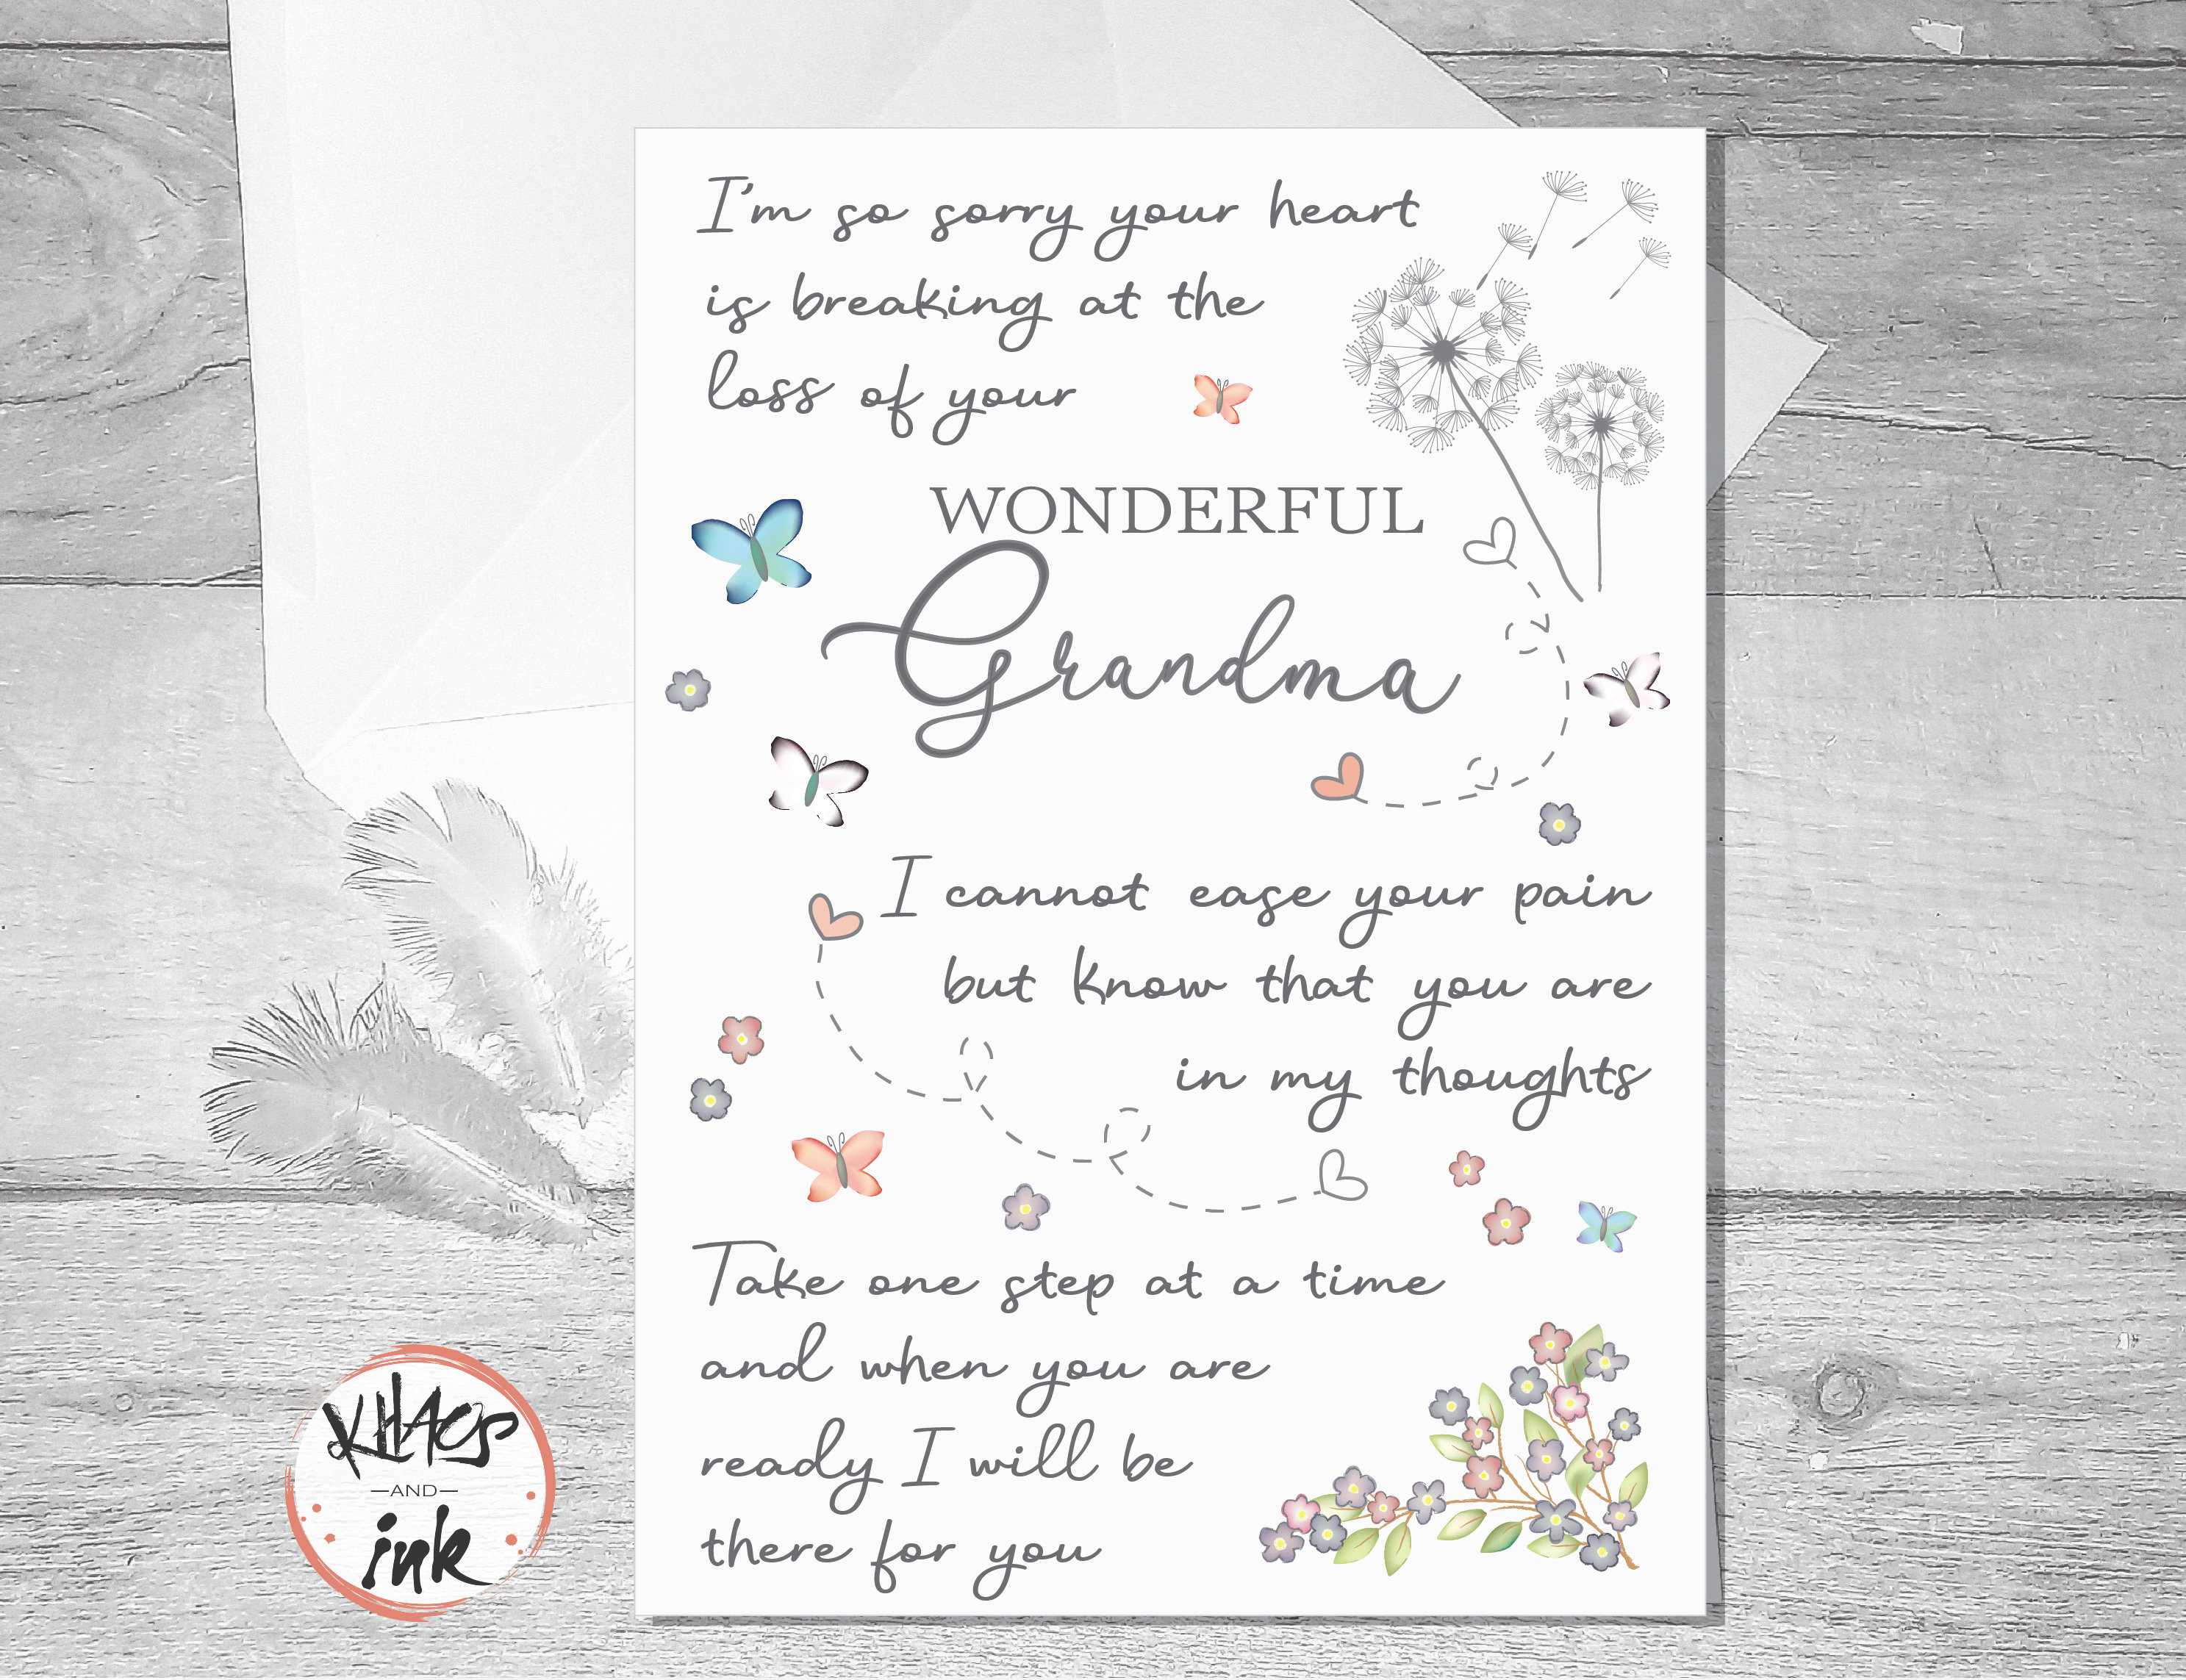 I'm so sorry your heart
is breaking at the
loss of your
WONDERFUL
Grandma
I cannot ease your pain
but know that you are
in my thoughts
Take one step at a time
and when you are
ready I will be
there for you
KHAOS
AND
ink